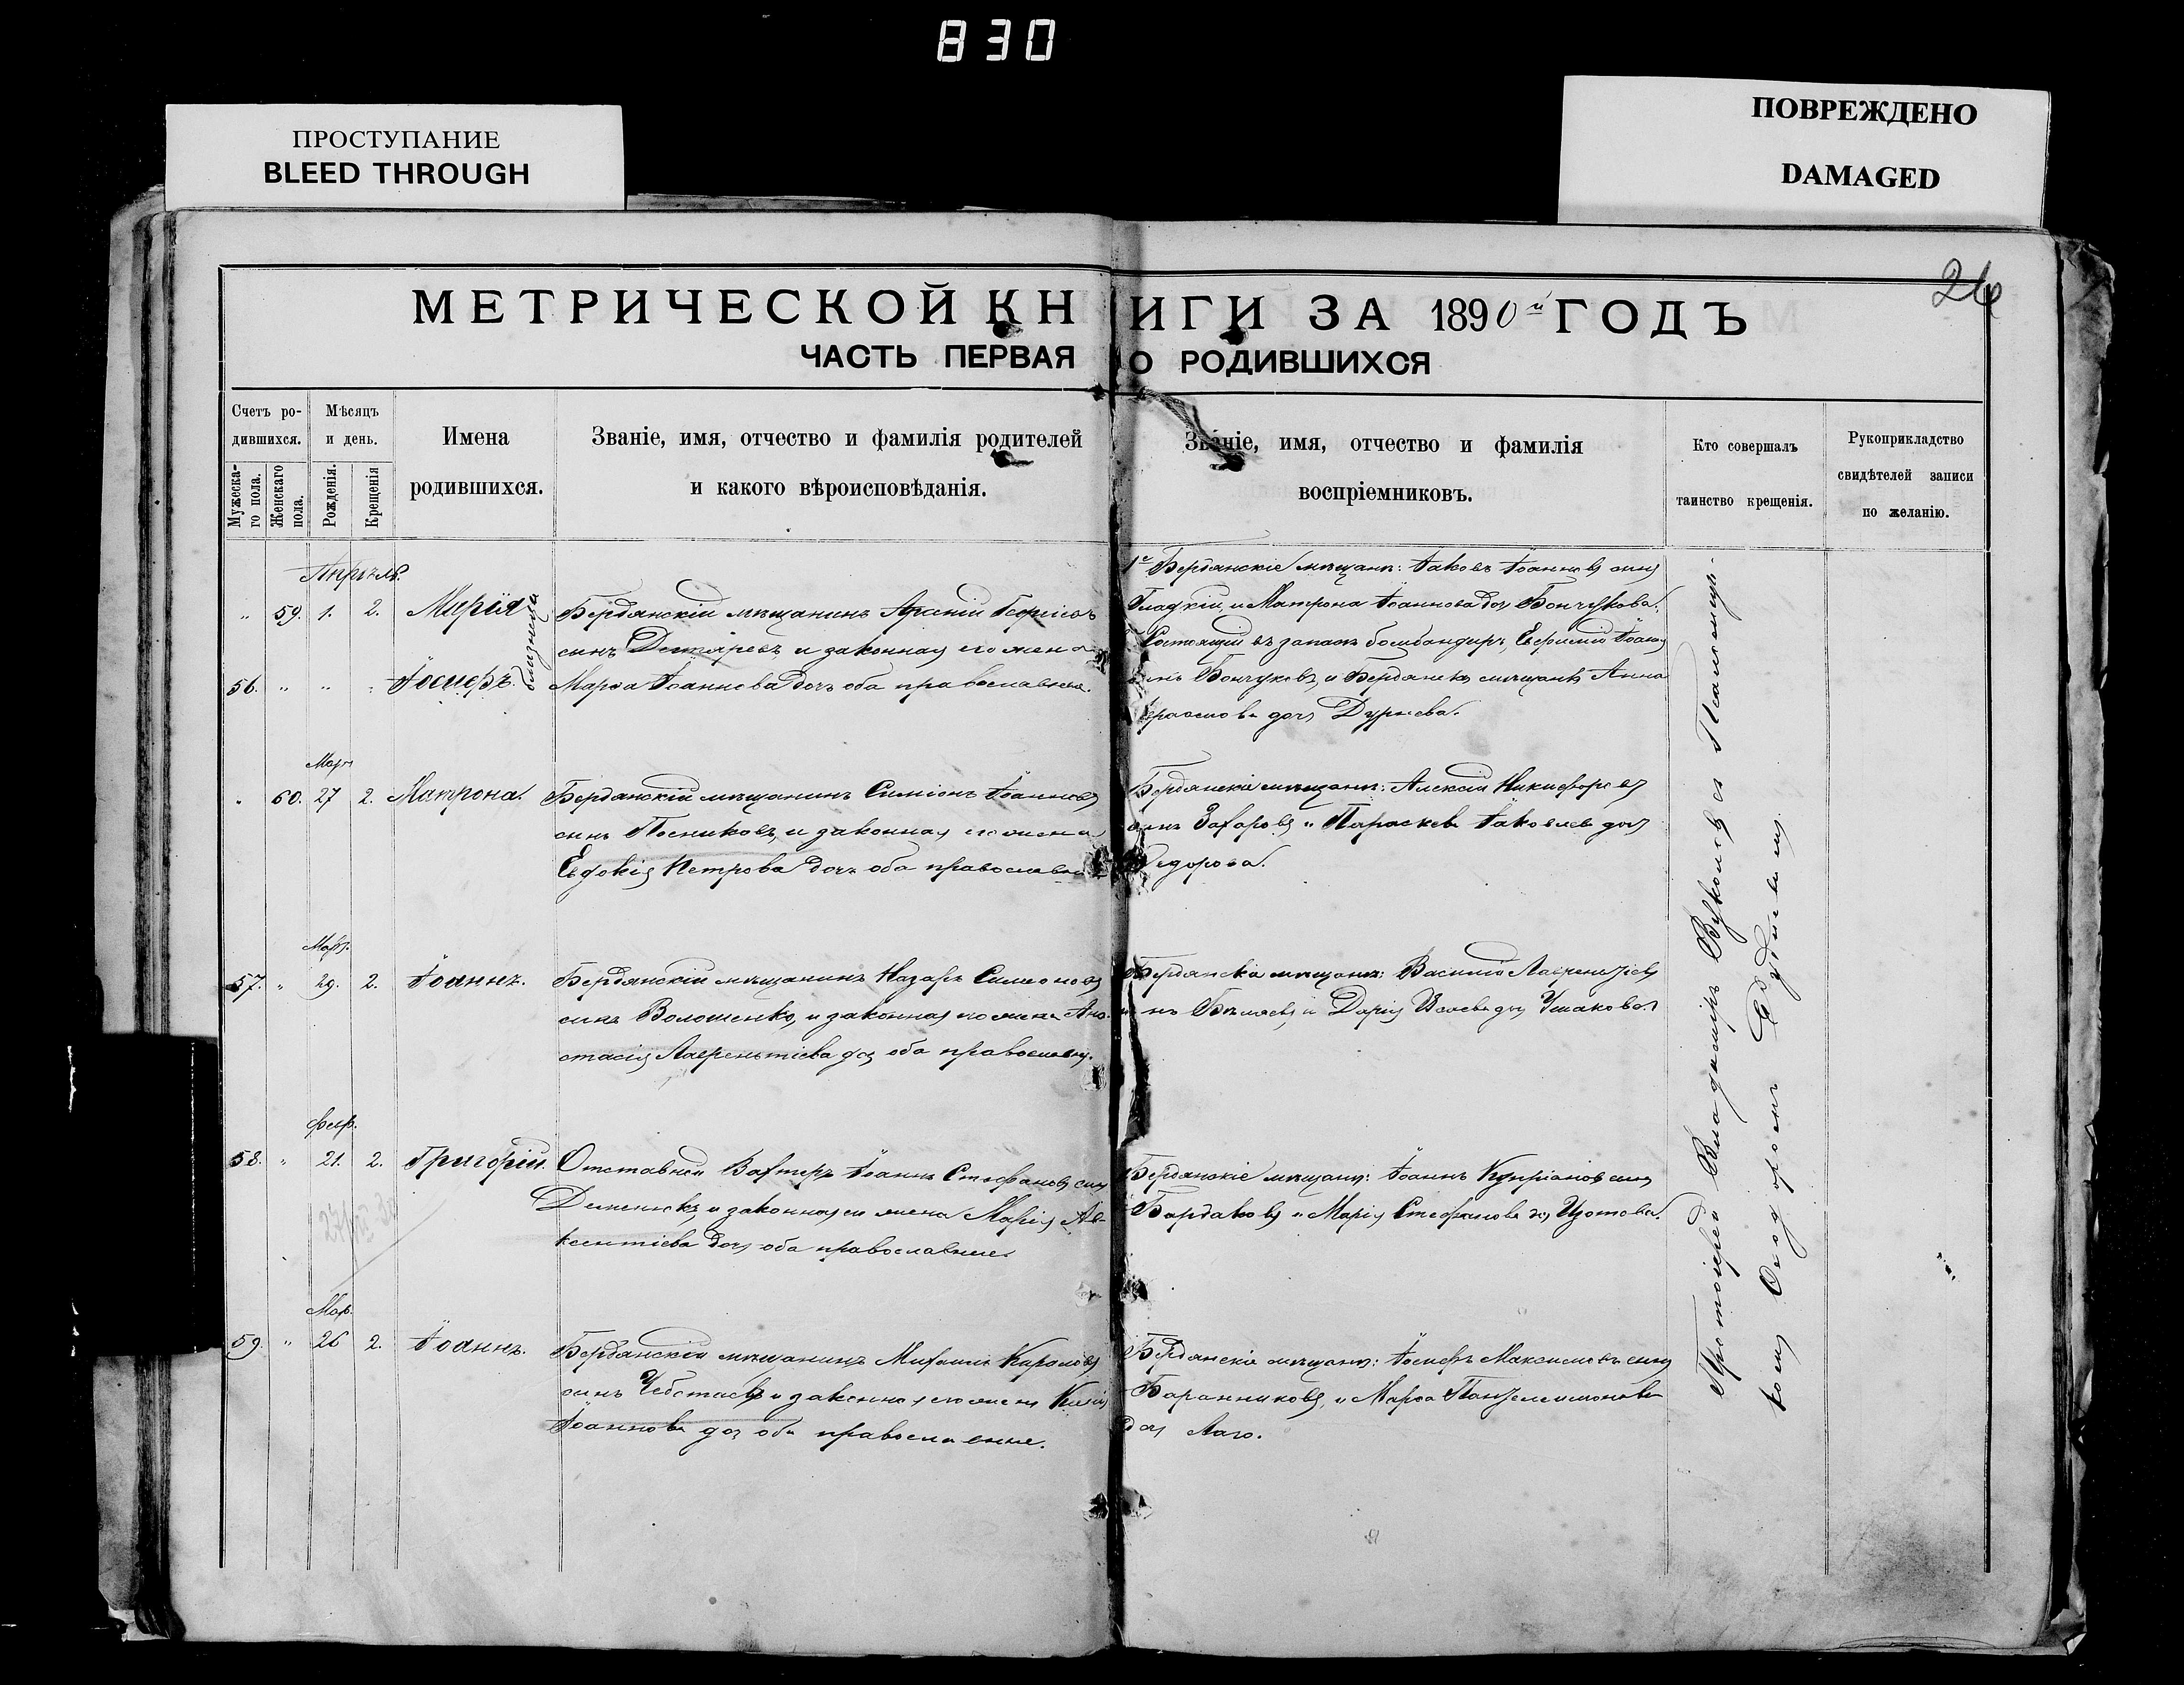 830
ПРОСТУПАНИЕ
BLEED THROUGH
ПОВРЕЖДЕНО
DAMAGED
26
МЕТРИЧЕСКОЙ КНИГИ ЗА 1890й ГОДЪ
ЧАСТЬ ПЕРВАЯ О РОДИВШИХСЯ
Счетъ ро-
дившихся.
Мужеска-
го пола.
Женскаго
пола.
Мѣсяцъ
и день.
Рожденія.
Крещенія
Имена
родившихся.
Званіе, имя, отчество и фамилія родителей
и какого вѣроисповѣданія.
Званіе, имя, отчество и фамилія
воспріемниковъ.
Кто совершалъ
таинство крещенія.
Рукоприкладство
свидѣтелей записи
по желанію.
Апрѣль.
" 59. 1. 2. Марія
56. " " " Іосифъ.
близнецы
Бердянскій мѣщанинъ Арсеній
сынъ Дегтяревъ, и законная его жена
Марѳа Іоаннова дочь оба православные.
1е Бердянскіе мѣщане: Іаковъ Іоанновъ сынъ
Гладкій, и Матрона Іоаннова дочь Бончукова.
Состоящій въ запасѣ бомбандиръ, Ефимій
Бончуковъ, и мѣщанка Анна
дочь
Мар.
" 60. 27 2. Матрона.
Бердянскій мѣщанинъ Симеонъ Іоанновъ
сынъ Посниковъ, и законная его жена
Евдокія Петрова дочь оба православные
Бердянскіе мѣщане: Алексій Никифоровъ
сынъ Захаровъ и Параскева Іаковлева дочь
Федорова.
Март.
57. " 29. 2. Іоаннъ.
Бердянскій мѣщанинъ Назаръ Симеоновъ
сынъ Волошенко, и законная его жена Ана-
стасія Лаврентіева дочь оба православные.
Бердянскіе мѣщане: Василій Лаврентіевъ
Бѣляевъ, и Дарія дочь Ушакова.
Февр.
58. " 21. 2. Григорій.
Отставной Вахтеръ Іоаннъ Стефановъ сынъ
Деменюкъ, и законная его жена Марія Ав-
ксентіева дочь оба православные.
Бердянскіе мѣщане: Іоаннъ Купріановъ сынъ
Бардаковъ и Марія Стефанова дочь Изотова.
Мар.
59. " 26 2. Іоаннъ.
Бердянскій мѣщанинъ Михаилъ Карповъ
сынъ и законная его жена
Іоаннова дочь оба православные.
Бердянскіе мѣщане: Іосифъ Максимовъ сынъ
Баранниковъ, и Марѳа Пантелеимонова
дочь
Протоіерей Владиміръ Вукотичъ съ Псаломщи-
комъ Ѳеодоромъ